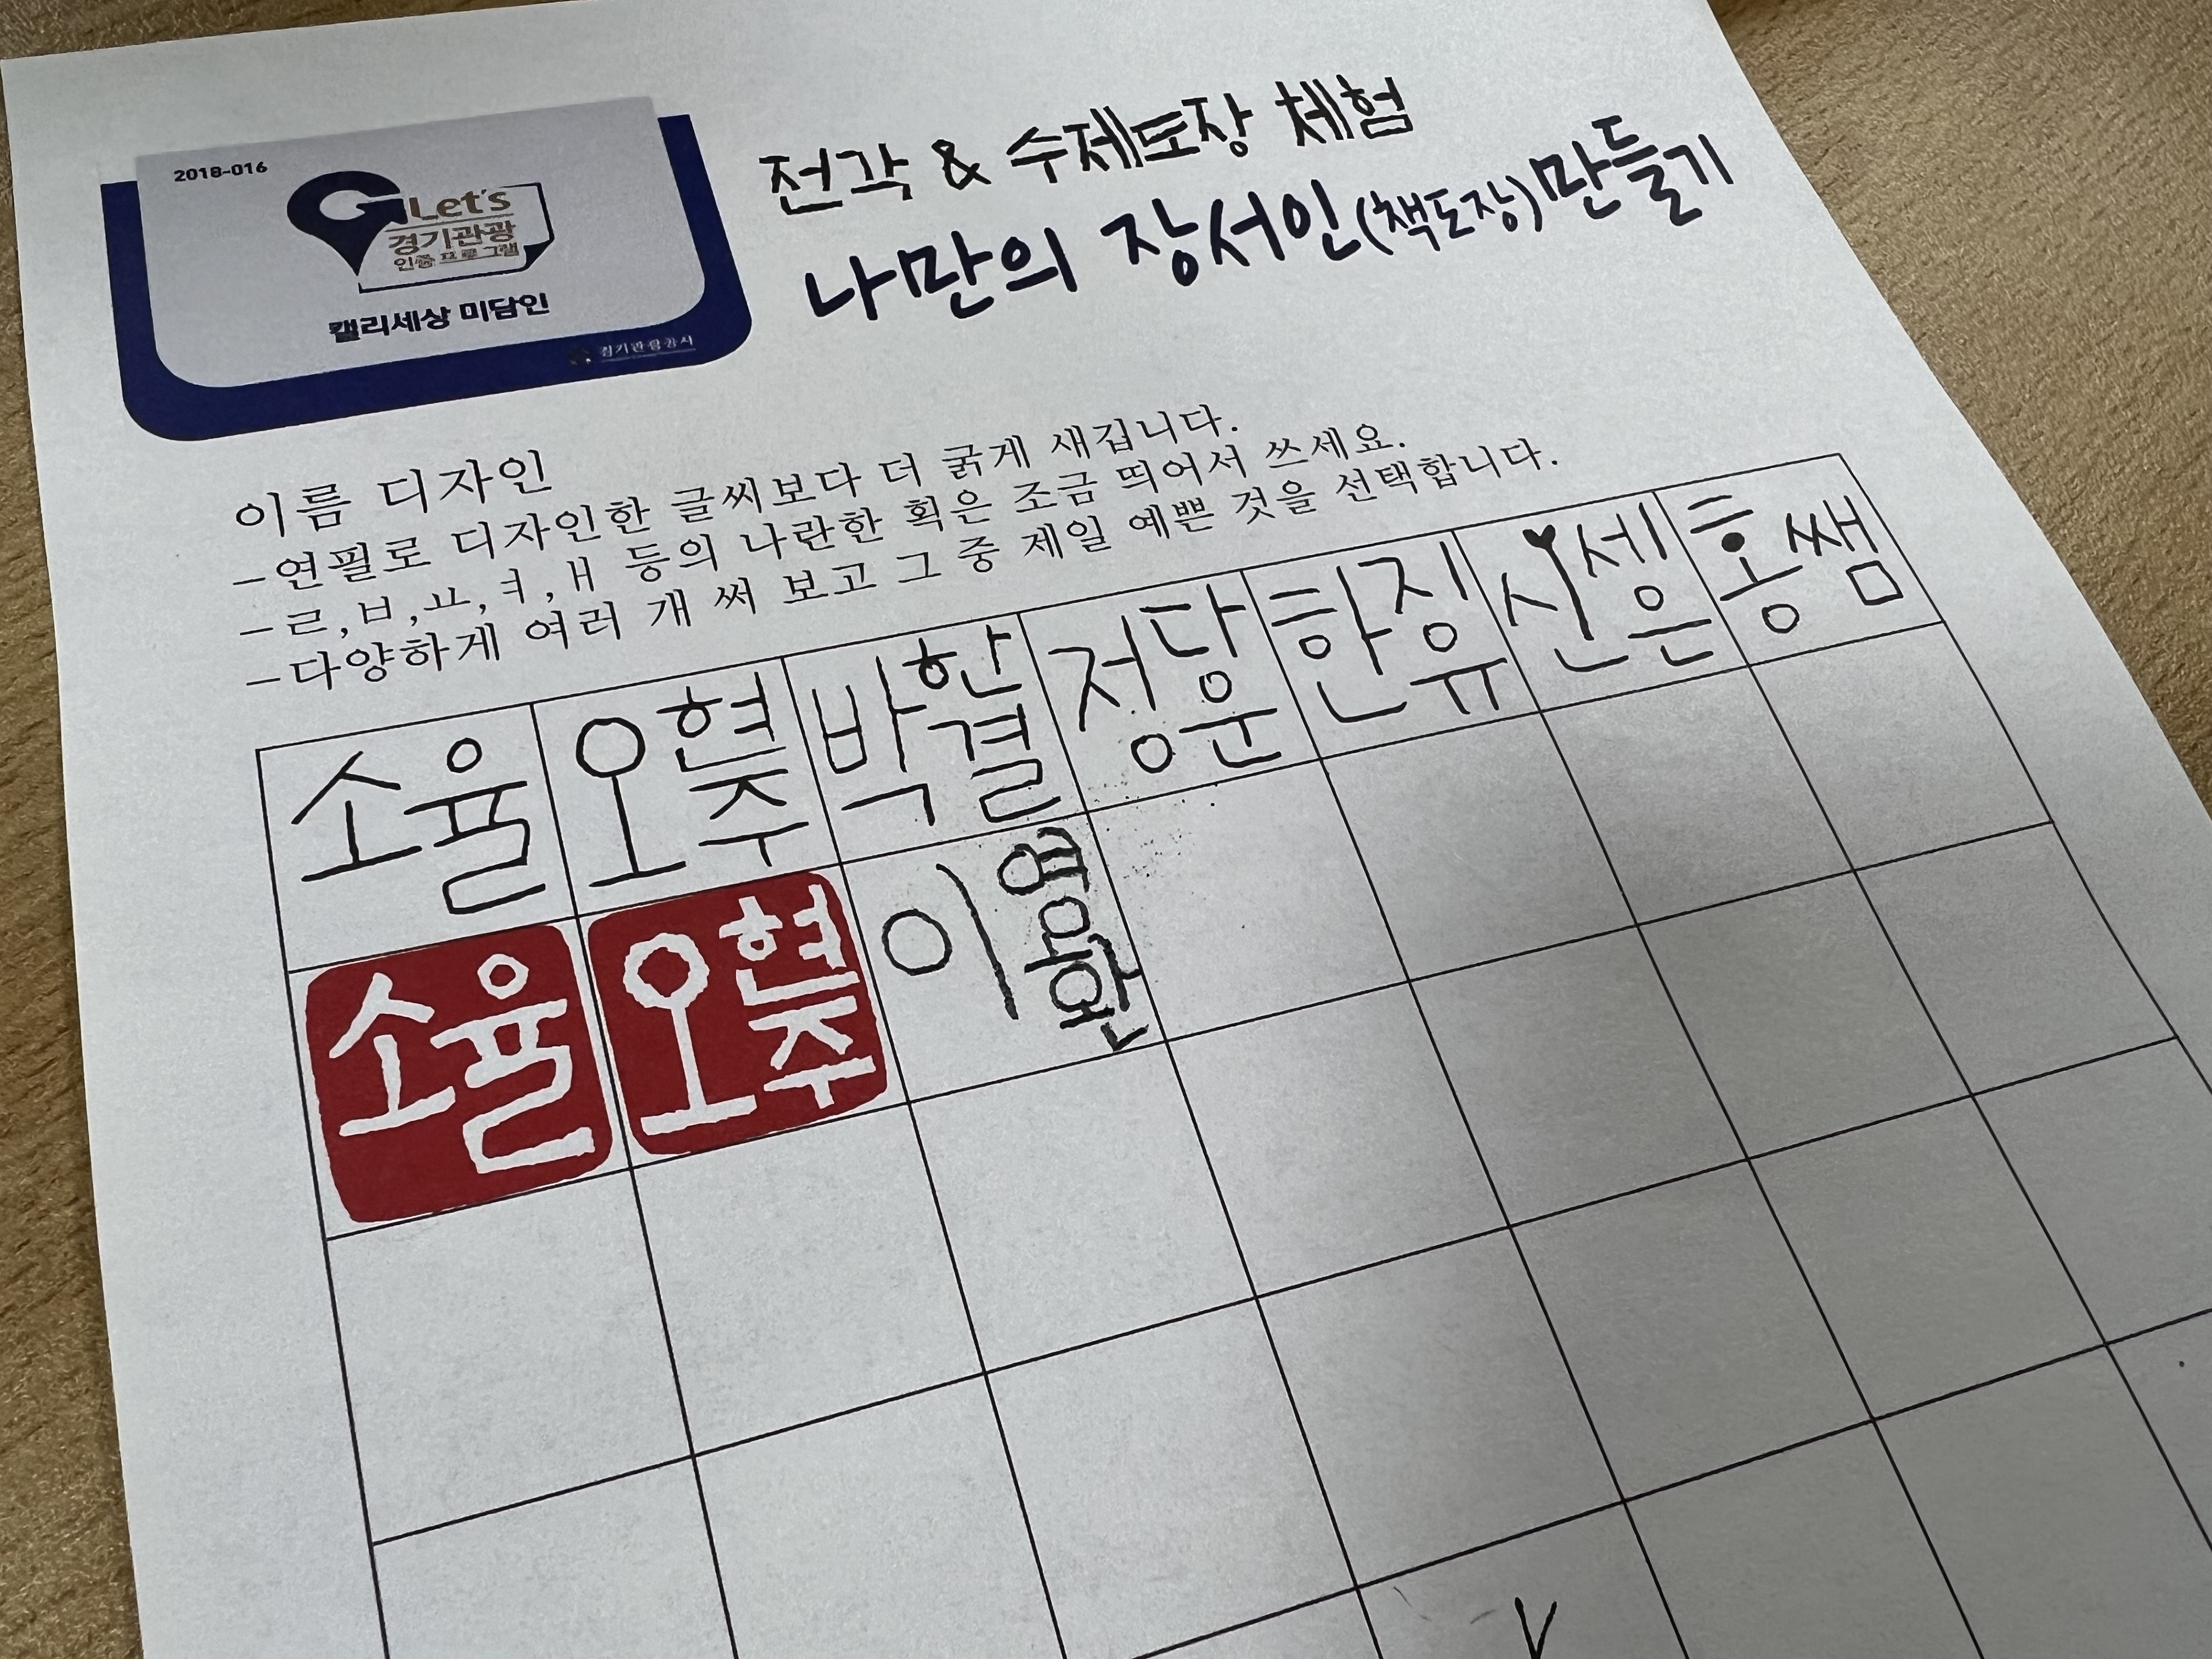 2018-016
Let's
경기관광
인증 프로그램
캘리세상 미담인
경기관광공사
전각 & 수제도장 체험
나만의 장서인(책도장)만들기
이름 디자인
-연필로 디자인한 글씨보다 더 굵게 새깁니다.
-ㄹ,ㅂ,ㅛ,ㅕ,ㅐ 등의 나란한 획은 조금 띄어서 쓰세요.
-다양하게 여러 개 써 보고 그 중 제일 예쁜 것을 선택합니다.
소율 오현주 박한결 정다운 한징유 신세은 홍쌤
소율 오현주 이영환